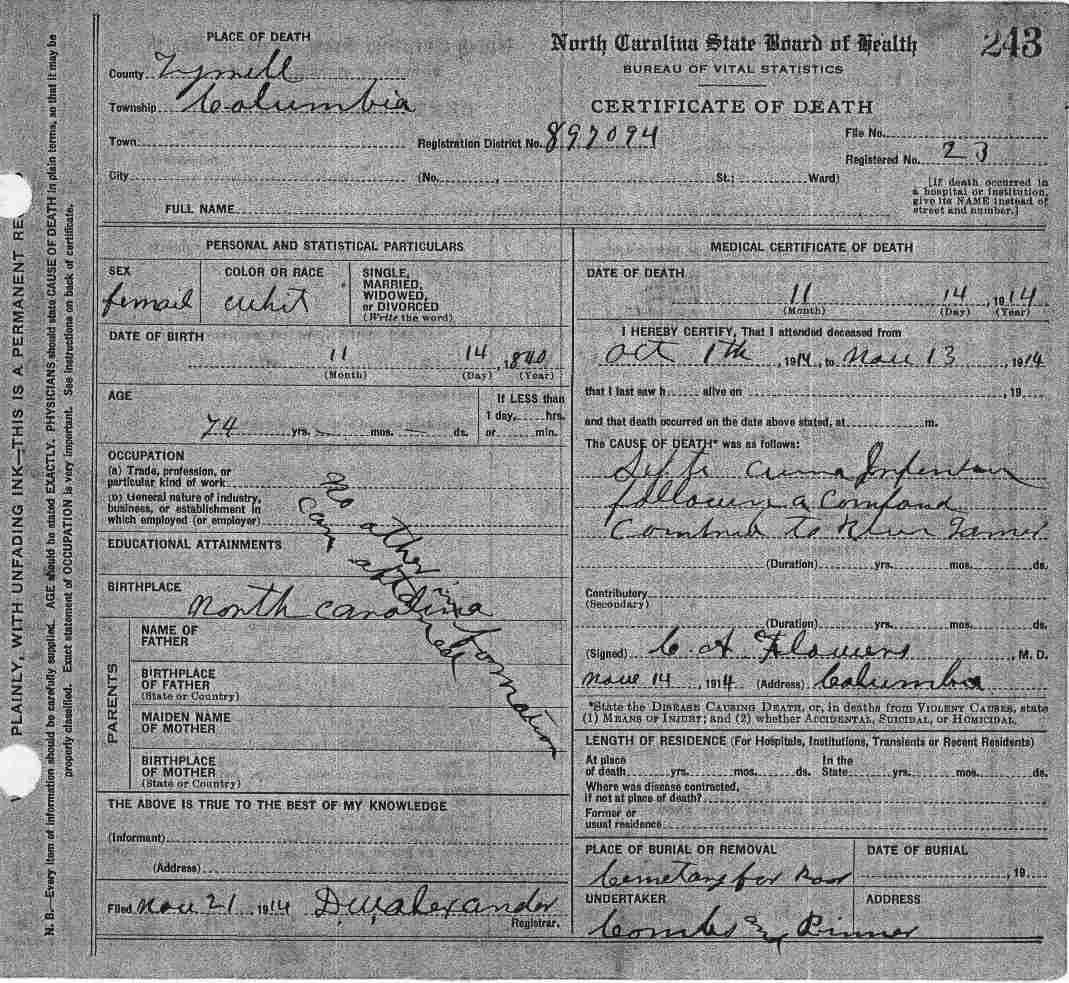 PLACE OF DEATH
County Tyrrell
Township Columbia
Town
City (No. , St.; Ward)
FULL NAME
North Carolina State Board of Health
BUREAU OF VITAL STATISTICS
CERTIFICATE OF DEATH
243
Registration District No. 897094
File No.
Registered No. 23
[If death occurred in
a hospital or institution,
give its NAME instead of
street and number.]
PERSONAL AND STATISTICAL PARTICULARS
SEX
femail
COLOR OR RACE
whit
SINGLE,
MARRIED,
WIDOWED,
or DIVORCED
(Write the word)
DATE OF BIRTH
11 14 , 1840
(Month) (Day) (Year)
AGE
74 yrs. — mos. — ds.
If LESS than
1 day, hrs.
or min.
OCCUPATION
(a) Trade, profession, or
particular kind of work
(b) General nature of industry,
business, or establishment in
which employed (or employer)
EDUCATIONAL ATTAINMENTS
No other information
can obtained
BIRTHPLACE
North Carolina
PARENTS
NAME OF
FATHER
BIRTHPLACE
OF FATHER
(State or Country)
MAIDEN NAME
OF MOTHER
BIRTHPLACE
OF MOTHER
(State or Country)
THE ABOVE IS TRUE TO THE BEST OF MY KNOWLEDGE
(Informant)
(Address)
Filed Nov 21 , 1914 D W Alexander
Registrar.
MEDICAL CERTIFICATE OF DEATH
DATE OF DEATH
11 14 , 1914
(Month) (Day) (Year)
I HEREBY CERTIFY, That I attended deceased from
Oct 1th , 1914, to Nov 13 , 1914
that I last saw h alive on , 19
and that death occurred on the date above stated, at m.
The CAUSE OF DEATH* was as follows:
following a
to
(Duration) yrs. mos. ds.
Contributory
(Secondary)
(Duration) yrs. mos. ds.
(Signed) C. A. Flowers , M. D.
Nov 14 , 1914 (Address) Columbia
*State the DISEASE CAUSING DEATH, or, in deaths from VIOLENT CAUSES, state
(1) MEANS OF INJURY; and (2) whether ACCIDENTAL, SUICIDAL, or HOMICIDAL.
LENGTH OF RESIDENCE (For Hospitals, Institutions, Transients or Recent Residents)
At place
of death yrs. mos. ds.
In the
State yrs. mos. ds.
Where was disease contracted,
if not at place of death?
Former or
usual residence
PLACE OF BURIAL OR REMOVAL
Cemetary for
DATE OF BURIAL
, 19
UNDERTAKER
Combs & Pinner
ADDRESS
PLAINLY, WITH UNFADING INK—THIS IS A PERMANENT RE
N. B.—Every item of information should be carefully supplied. AGE should be stated EXACTLY. PHYSICIANS should state CAUSE OF DEATH in plain terms, so that it may be
properly classified. Exact statement of OCCUPATION is very important. See instructions on back of certificate.